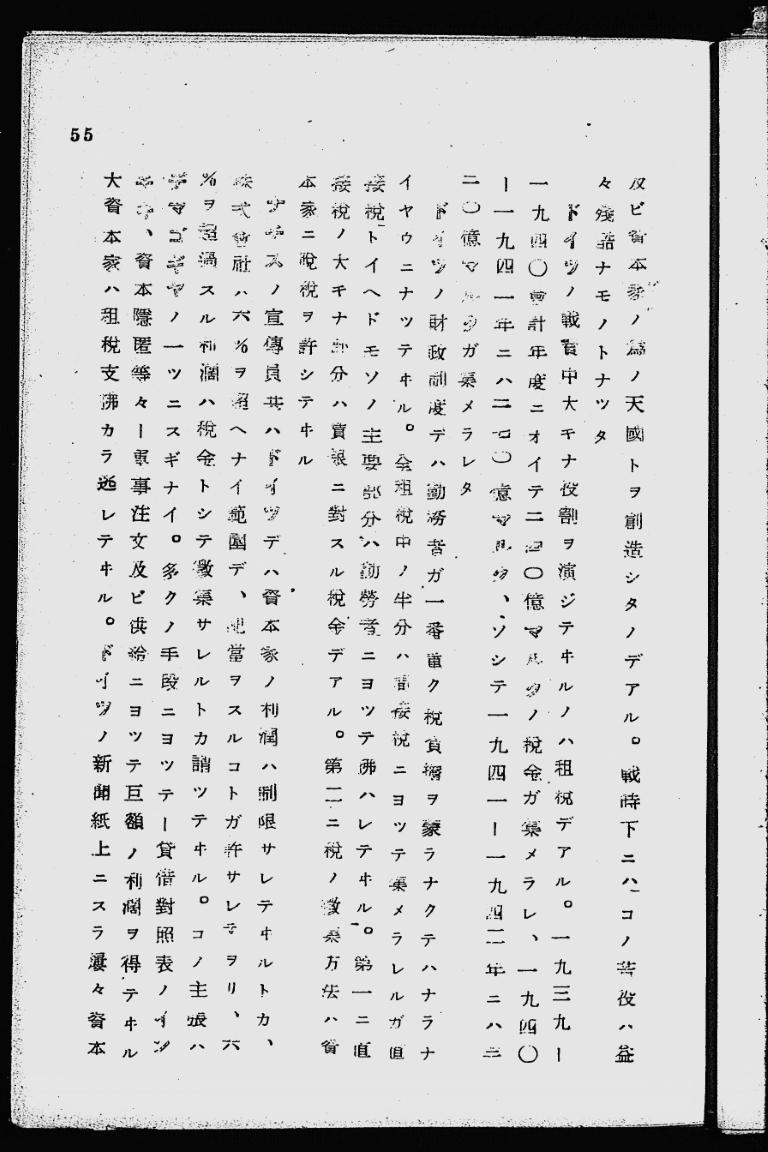 55
及ビ資本家ノ為ノ天國トヲ創造シタノデアル。戰時下ニハコノ苦役ハ益
々殘酷ナモノトナツタ
ドイツノ戰費中大キナ役割ヲ演ジテヰルノハ租税デアル。一九三九ー
一九四〇會計年度ニオイテ二四〇億マルクノ税金ガ集メラレ、一九四〇
ー一九四一年ニハ二七〇億マルク、ソシテ一九四一ー一九四二年ニハ三
二〇億マルクガ集メラレタ
ドイツノ財政制度デハ勤勞者ガ一番重ク税負擔ヲ蒙ラナクテハナラナ
イヤウニナツテヰル。全租税中ノ半分ハ間接税ニヨツテ集メラレルガ直
接税トイヘドモソノ主要部分ハ勤勞者ニヨツテ拂ハレテヰル。第一ニ直
接税ノ大キナ部分ハ賃銀ニ對スル税金デアル。第二ニ税ノ徴集方法ハ資
本家ニ脱税ヲ許シテヰル
ナチスノ宣傳員共ハドイツデハ資本家ノ利潤ハ制限サレテヰルトカ、
株式會社ハ六%ヲ超ヘナイ範圍デ、配當ヲスルコトガ許サレテヲリ、六
%ヲ超過スル利潤ハ税金トシテ徴集サレルトカ誚ツテヰル。コノ主張ハ
デマゴギヤノ一ツニスギナイ。多クノ手段ニヨツテー貸借對照表ノイン
チキ、資本隱匿等々ー軍事注文及ビ供給ニヨツテ巨額ノ利潤ヲ得テヰル
大資本家ハ租税支拂カラ逃レテヰル。ドイツノ新聞紙上ニスラ屢々資本